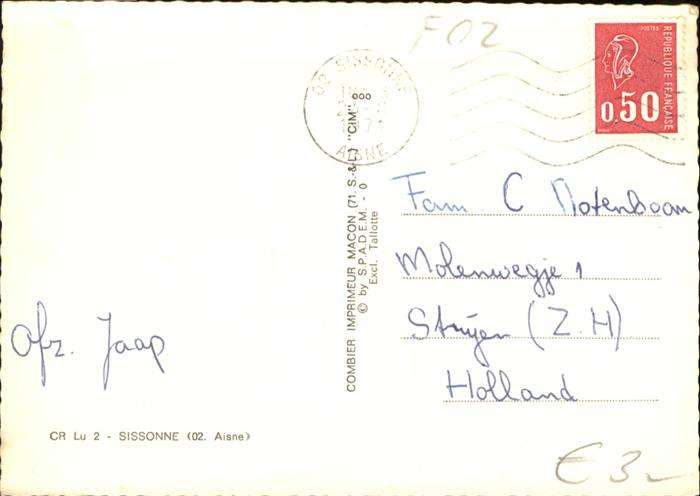 F02
02 SISSONNE
AISNE
POSTES
REPUBLIQUE FRANÇAISE
0,50
COMBIER IMPRIMEUR MACON (71. S.-&-L.) "CIM"
© by S.P.A.D.E.M. - 0
Excl. Tallotte
Fam. C Notenboom
Molenwegje 1
Strijen (Z.H)
Holland
Afz. Jaap
CR Lu 2 - SISSONNE (02. Aisne)
€ 3,-